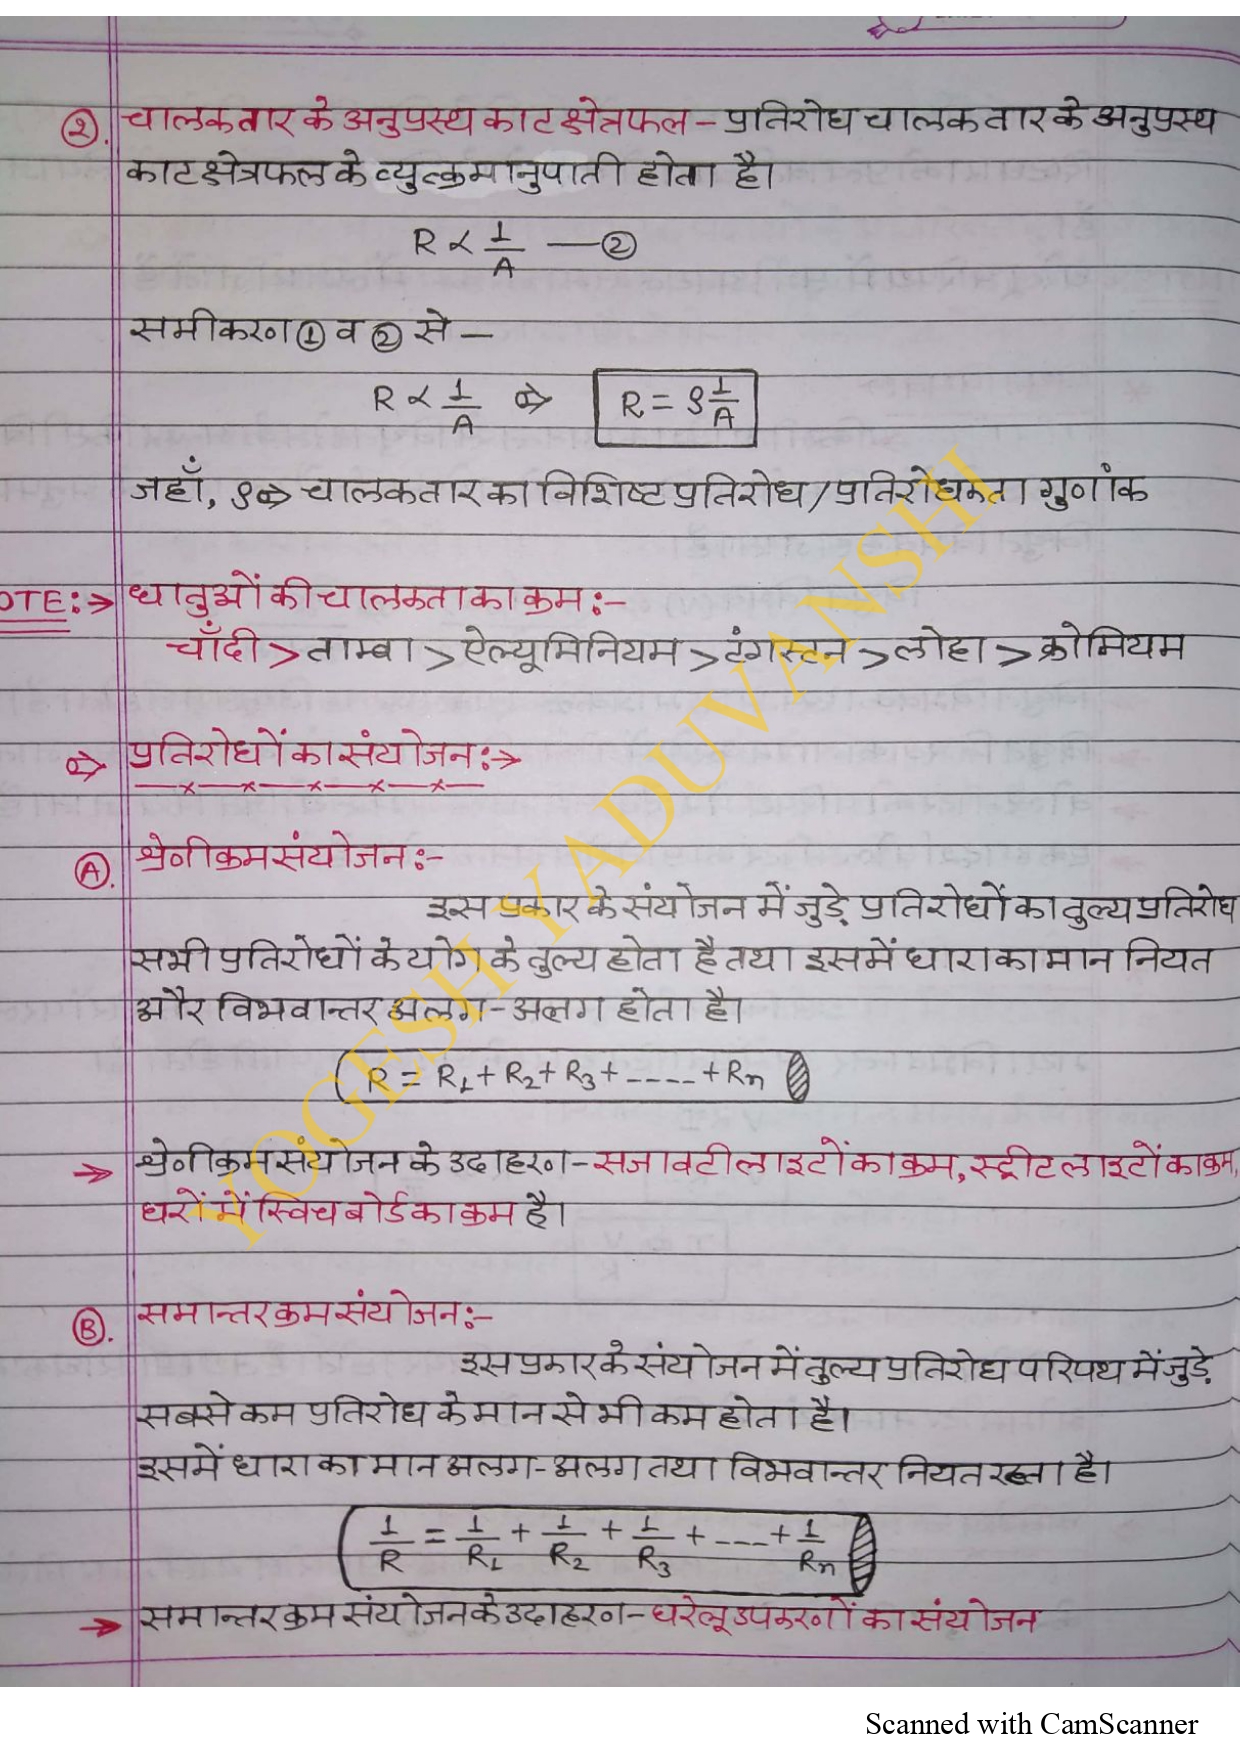 ②. चालक तार के अनुप्रस्थ काट क्षेत्रफल - प्रतिरोध चालक तार के अनुप्रस्थ
काट क्षेत्रफल के व्युत्क्रमानुपाती होता है।
R ∝ 1/A — ②
समीकरण ① व ② से —
R ∝ 1/A ⇒ R = ρ 1/A
जहाँ, ρ ⇒ चालक तार का विशिष्ट प्रतिरोध / प्रतिरोधकता गुणांक
OTE:→ धातुओं की चालकता का क्रम :-
चाँदी > ताम्बा > ऐल्यूमिनियम > टंगस्टन > लोहा > क्रोमियम
⇒ प्रतिरोधों का संयोजन:→
Ⓐ. श्रेणीक्रम संयोजन:-
इस प्रकार के संयोजन में जुड़े प्रतिरोधों का तुल्य प्रतिरोध
सभी प्रतिरोधों के योग के तुल्य होता है तथा इसमें धारा का मान नियत
और विभवान्तर अलग-अलग होता है।
R = R1 + R2 + R3 + ----- + Rn
→ श्रेणीक्रम संयोजन के उदाहरण - सजावटी लाइटों का क्रम, स्ट्रीट लाइटों का क्रम,
घरों में स्विच बोर्ड का क्रम है।
Ⓑ. समान्तर क्रम संयोजन:-
इस प्रकार के संयोजन में तुल्य प्रतिरोध परिपथ में जुड़े
सबसे कम प्रतिरोध के मान से भी कम होता है।
इसमें धारा का मान अलग-अलग तथा विभवान्तर नियत रहता है।
1/R = 1/R1 + 1/R2 + 1/R3 + ----- + 1/Rn
→ समान्तर क्रम संयोजन के उदाहरण - घरेलू उपकरणों का संयोजन
YOGESH YADUVANSHI
Scanned with CamScanner